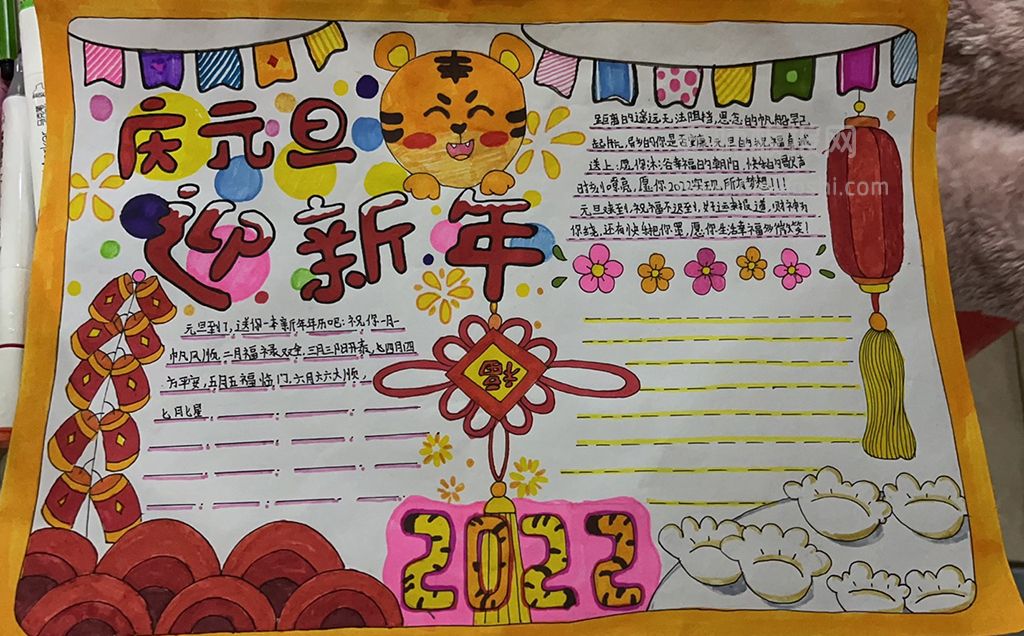 庆元旦
迎新年
距离的遥远无法阻挡,思念的帆船早已
起航,
送上:愿你沐浴幸福的朝阳,快乐的歌声
时刻嘹亮,愿你2022实现,所有梦想!!!
元旦来到,祝福不迟到,好运来报道,财神为
你绕,还有快乐把你罩,愿你生活幸福多微笑!
元旦到了,送你一本新年年历吧:祝你一月一
帆风顺,二月福禄双全,三月三阳开泰,七四月四
为平安,五月五福临门,六月六六大顺,
七月七星
福
2022